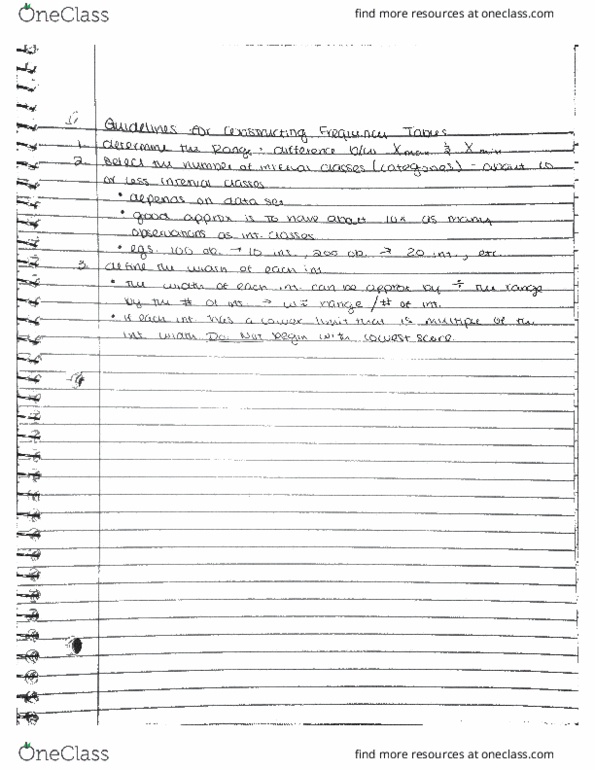 OneClass
find more resources at oneclass.com
Guidelines for Constructing Frequency Tables
1. determine the Range: difference b/w Xmax & Xmin
2. Select the number of interval classes (categories) - about 10
or less interval classes
• depends on data set
• good approx is to have about 10x as many
observations as int. classes
• egs. 100 ob. → 10 int., 200 ob. → 20 int., etc.
3. define the width of each int.
• the width of each int. can be approx by ÷ the range
by the # of int. → w= range/# of int.
• if each int. has a lower limit that is multiple of the
int. width Do Not begin with lowest score.
OneClass
find more resources at oneclass.com